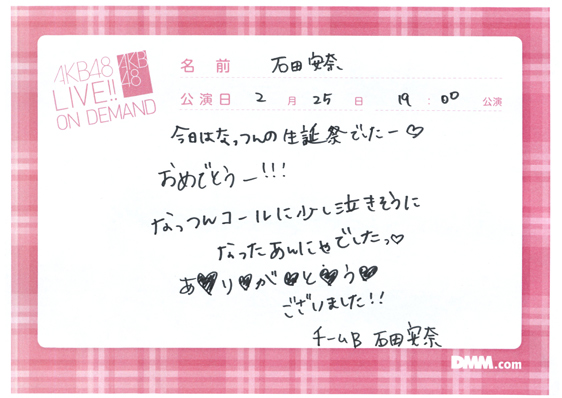 AKB48
LIVE!!
ON DEMAND
AKB
48
名前 石田安奈
公演日 2月25日 19:00公演
今日はなっつんの生誕祭でしたー♡
おめでとうー!!!
なっつんコールに少し泣きそうに
なったあんにゃでしたっ♡
あ♥り♥が♥と♥う♥
ございました!!
チームB 石田安奈
DMM.com